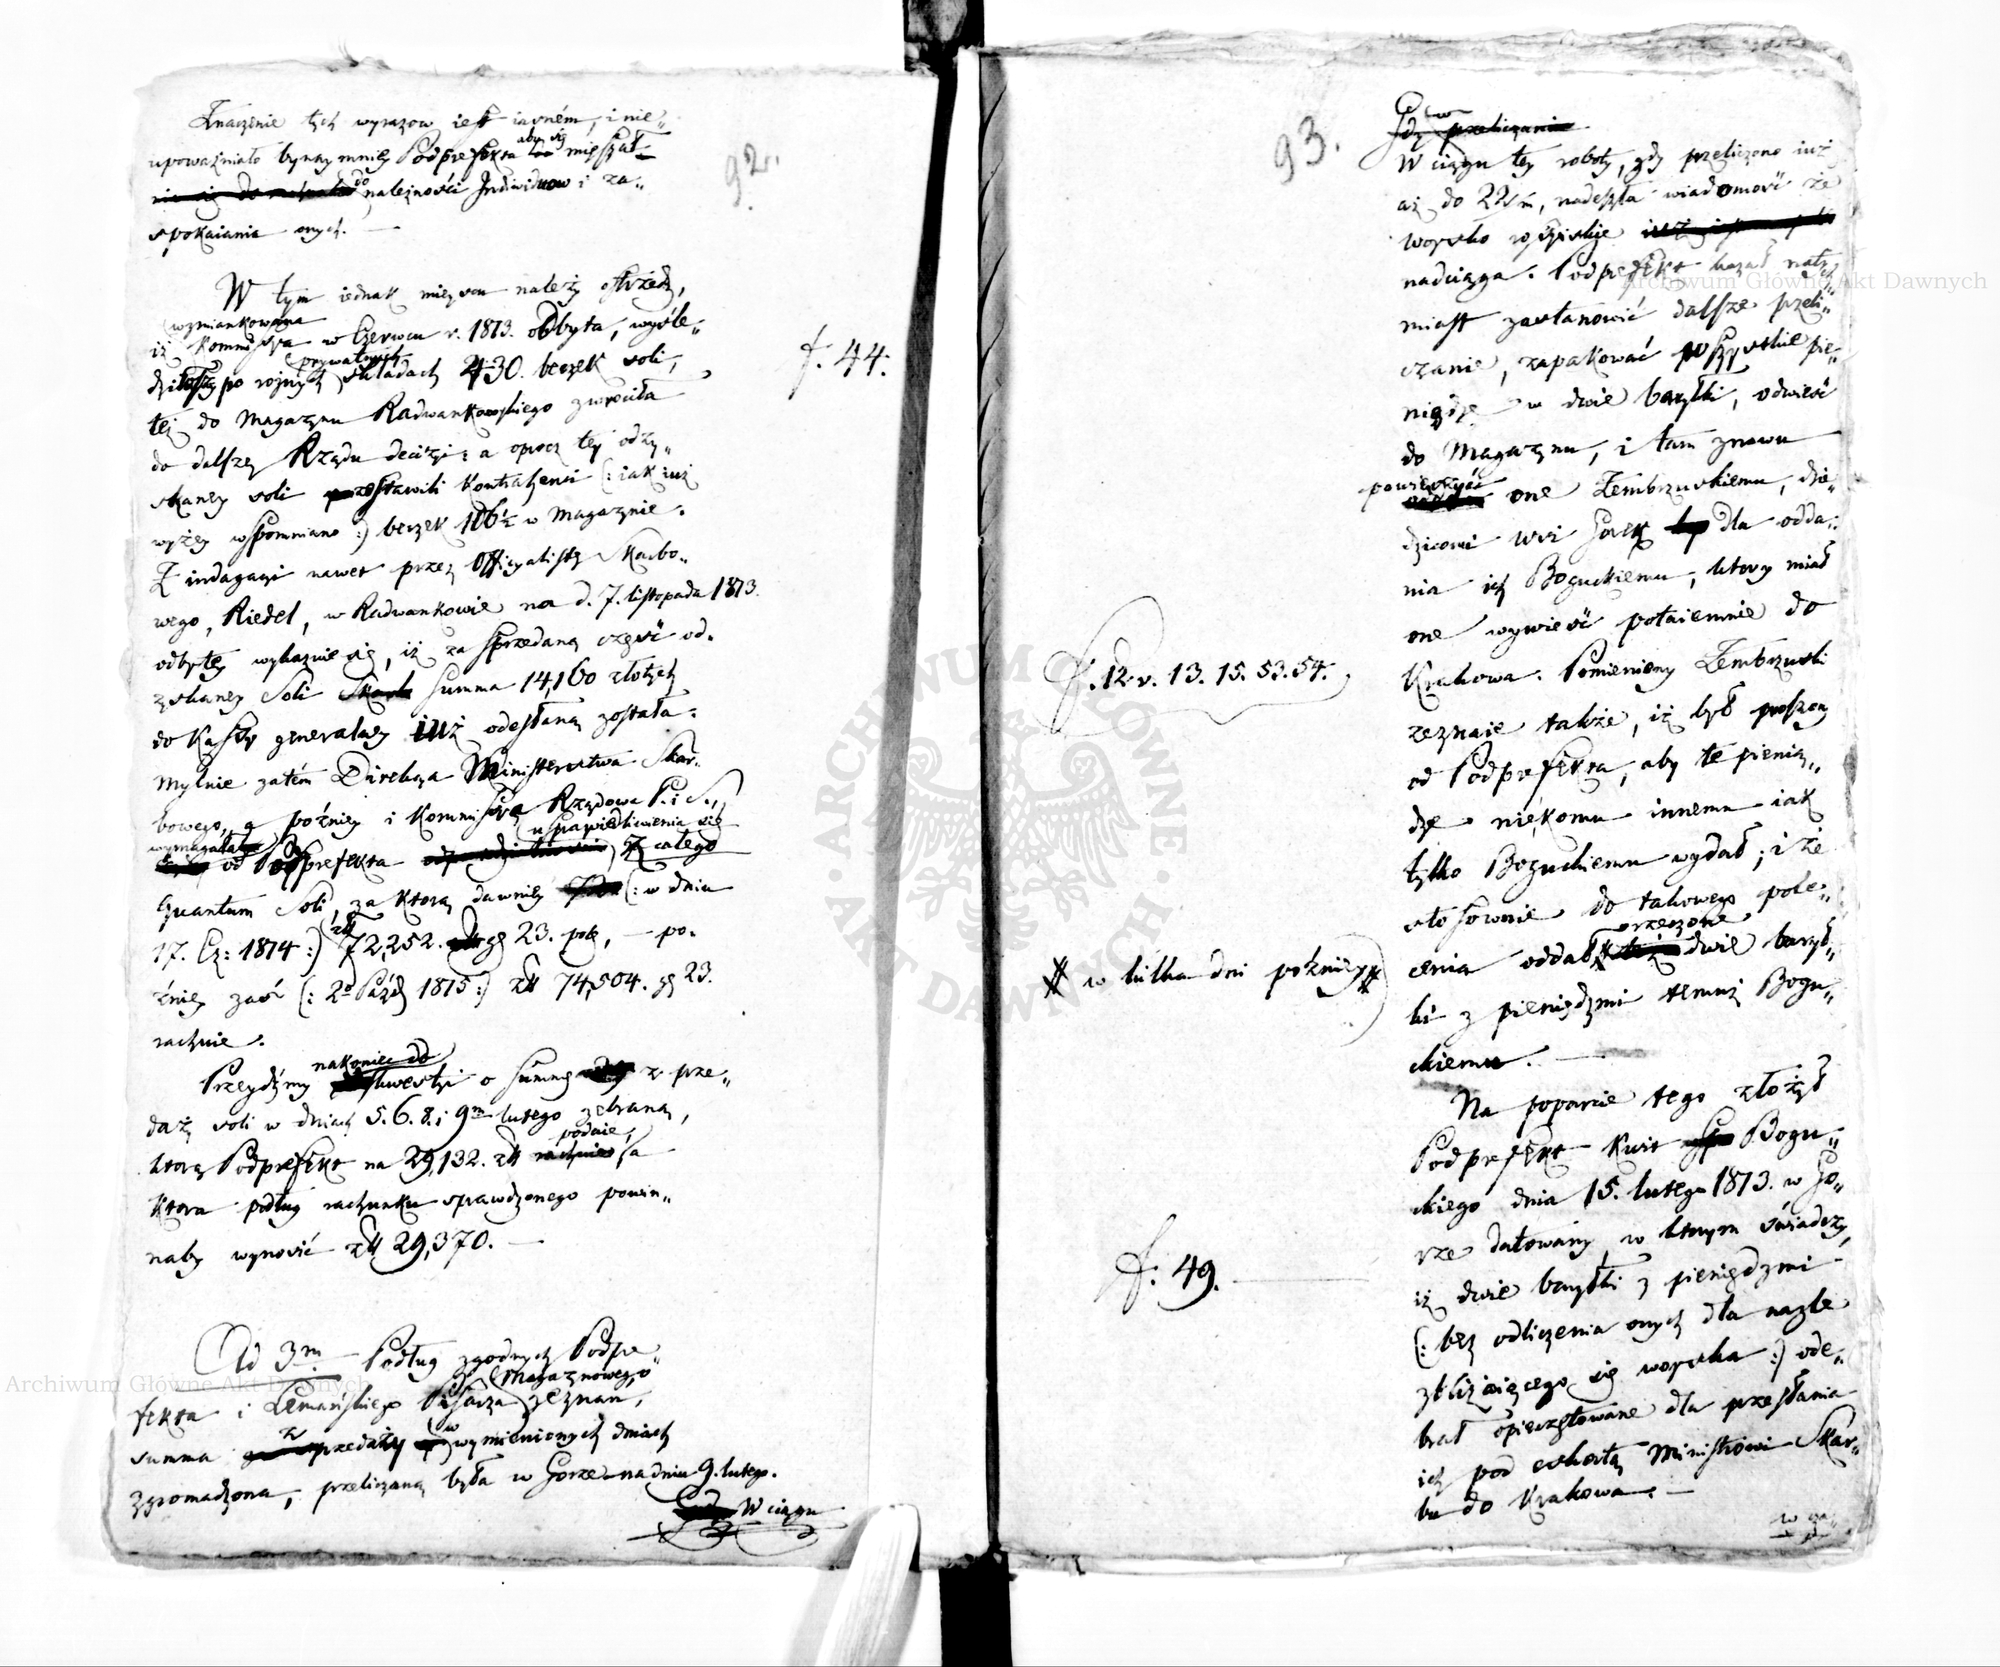 92.
Znaczenie tych wyrazow iest iasném, i nie„
upoważniało bynaymniey Podprefekta aby się mięszał
do należności Jndiwiduow i za„
spokaiania onych. —
W tym iednak mieyscu należy ostrzedz,
wzmiankowana
iż Kommissya w Czerwcu r. 1813. odbyta, wyśle„
prywatnych
dziłaszy po rożnych składach 430. beczek soli,
f. 44.
tęż do Magazynu Radwankowskiego zwrociła
do dalszey Rządu decizyi: a oprocz tey odzy„
skaney soli stawili Kontrahenci (: iak iuż
wyżey wspomniano :) beczek 106½ w Magaznie.
Z indagacyi nawet przez Officyalistę Skarbo„
wego, Riedel, w Radwankowie na d. 7. listopada 1813.
odbytey wykazuie się, iż za sprzedaną część od„
zyskaney Soli summa 14,160 złotych
do Kassy generalney iuż odesłaną została.
Mylnie zatém Direkcya Ministerstwa Skar„
bowego, a poźniey i Kommissya Rządowa P. i S.,
wymagała usprawiedliwienia się
od Podprefekta z całego
quantum Soli, za ktorą dawniey (: w dniu
17. Cz: 1814 :) zł 72,252. gr 23. pol, — po„
źniey zaś (: 2º Paźdz 1815 :) zł 74,504. gr 23.
rachuie.
nakoniec do
Przeydźmy kwestyi o summę z prze„
daży soli w dniach 5. 6. 8. i 9m lutego zebraną,
podaie,
ktorą Podprefekt na 29,132. zł a
ktora podług rachunku sprawdzonego powin„
naby wynosić zł 29,370. —
Ad 3m — Podług zgodnych Podpre„
Magaznowego
fekta i Lemańskiego Pisarza zeznan,
summa z przedaży w wymienionych dniach
zgromadzona, przeliczaną była w Gorze na dniu 9. lutego.
W ciągu
93.
W ciągu tey roboty, gdy przeliczono iuż
aż do 22/m, nadeszła wiadomość że
woysko rossyiskie
nadciąga. Podprefekt kazał natych„
miast zastanowić dalsze przeli„
czanie, zapakować wszystkie pie„
niądze w dwie baryłki, odwieść
do Magazynu, i tam znowu
powierzyć
one Zembrzuskiemu, dzie„
dzicowi wsi Gorek dla odda„
nia ich Boguckiemu, ktory miał
one wywieść potaiemnie do
f. 12 v. 13. 15. 53. 54.
Krakowa. Pomieniony Zembrzuski
zeznaie także, iż był proszony
od Podprefekta, aby te pienią„
dze niekomu innemu iak
tylko Boguckiemu wydał; i że
stosownie do takowego pole„
rzeczone
cenia oddał dwie barył„
# w kilka dni poźniey #
ki z pieniędzmi temuż Bogu„
ckiemu. —
Na poparcie tego złożył
Podprefekt Kwit Bogu„
ckiego dnia 15. lutego 1813. w Go„
rze datowany, w ktorym świadczy,
f: 49.
iż dwie baryłki z pieniędzmi
(: bez odliczenia onych dla nagle
zbliżaiącego się woyska :) ode„
brał opieczętowane dla przesłania
ich pod eskortą Ministrowi Skar„
bu do Krakowa. —
Archiwum Główne Akt Dawnych
Archiwum Główne Akt Dawnych
ARCHIWUM GŁÓWNE · AKT DAWNYCH ·